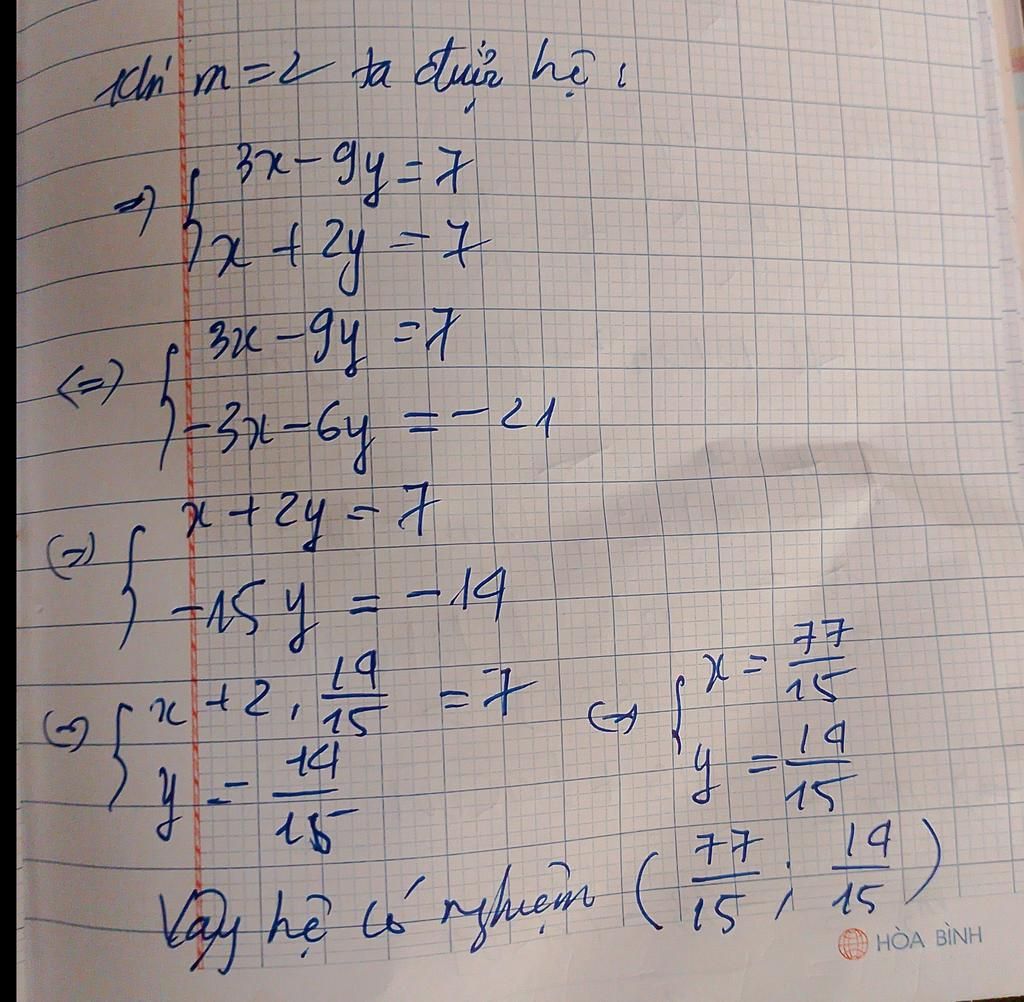 Khi m = 2 ta được hệ :
=> { 3x - 9y = 7
x + 2y = 7
<=> { 3x - 9y = 7
-3x - 6y = -21
<=> { x + 2y = 7
-15y = -14
<=> { x + 2 . 14/15 = 7
y = 14/15
<=> { x = 77/15
y = 14/15
Vậy hệ có nghiệm ( 77/15 ; 14/15 )
HÒA BÌNH